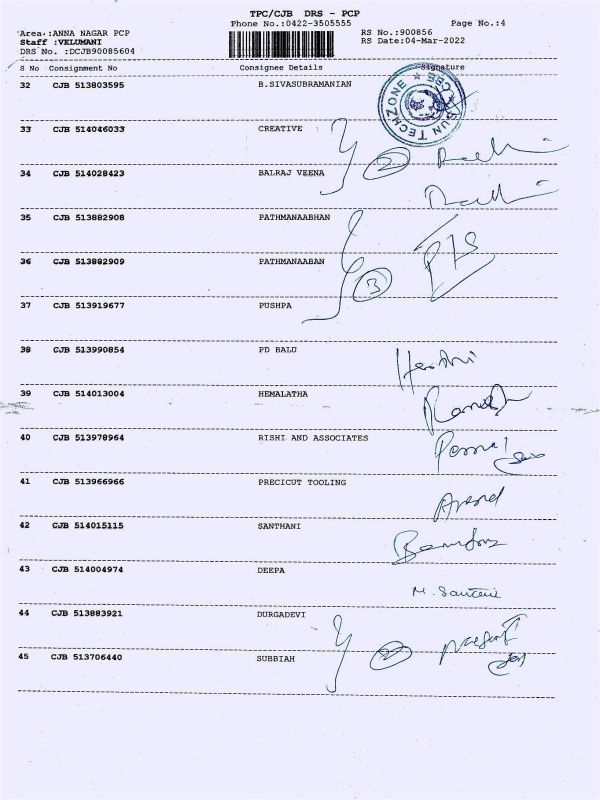 TPC/CJB DRS - PCP
Phone No.:0422-3505555 Page No.:4
Area.:ANNA NAGAR PCP RS No.:900856
Staff :VELUMANI RS Date:04-Mar-2022
DRS No. :DCJB90085604
S No Consignment No Consignee Details Signature
32 CJB 513803595 B.SIVASUBRAMANIAN
SUN TECHZONE ★ CBE ★
33 CJB 514046033 CREATIVE
2
34 CJB 514028423 BALRAJ VEENA
35 CJB 513882908 PATHMANAABHAN
36 CJB 513882909 PATHMANAABAN
3
37 CJB 513919677 PUSHPA
38 CJB 513990854 PD BALU
39 CJB 514013004 HEMALATHA
40 CJB 513978964 RISHI AND ASSOCIATES
41 CJB 513966966 PRECICUT TOOLING
42 CJB 514015115 SANTHANI
43 CJB 514004974 DEEPA
44 CJB 513883921 DURGADEVI
2
45 CJB 513706440 SUBBIAH